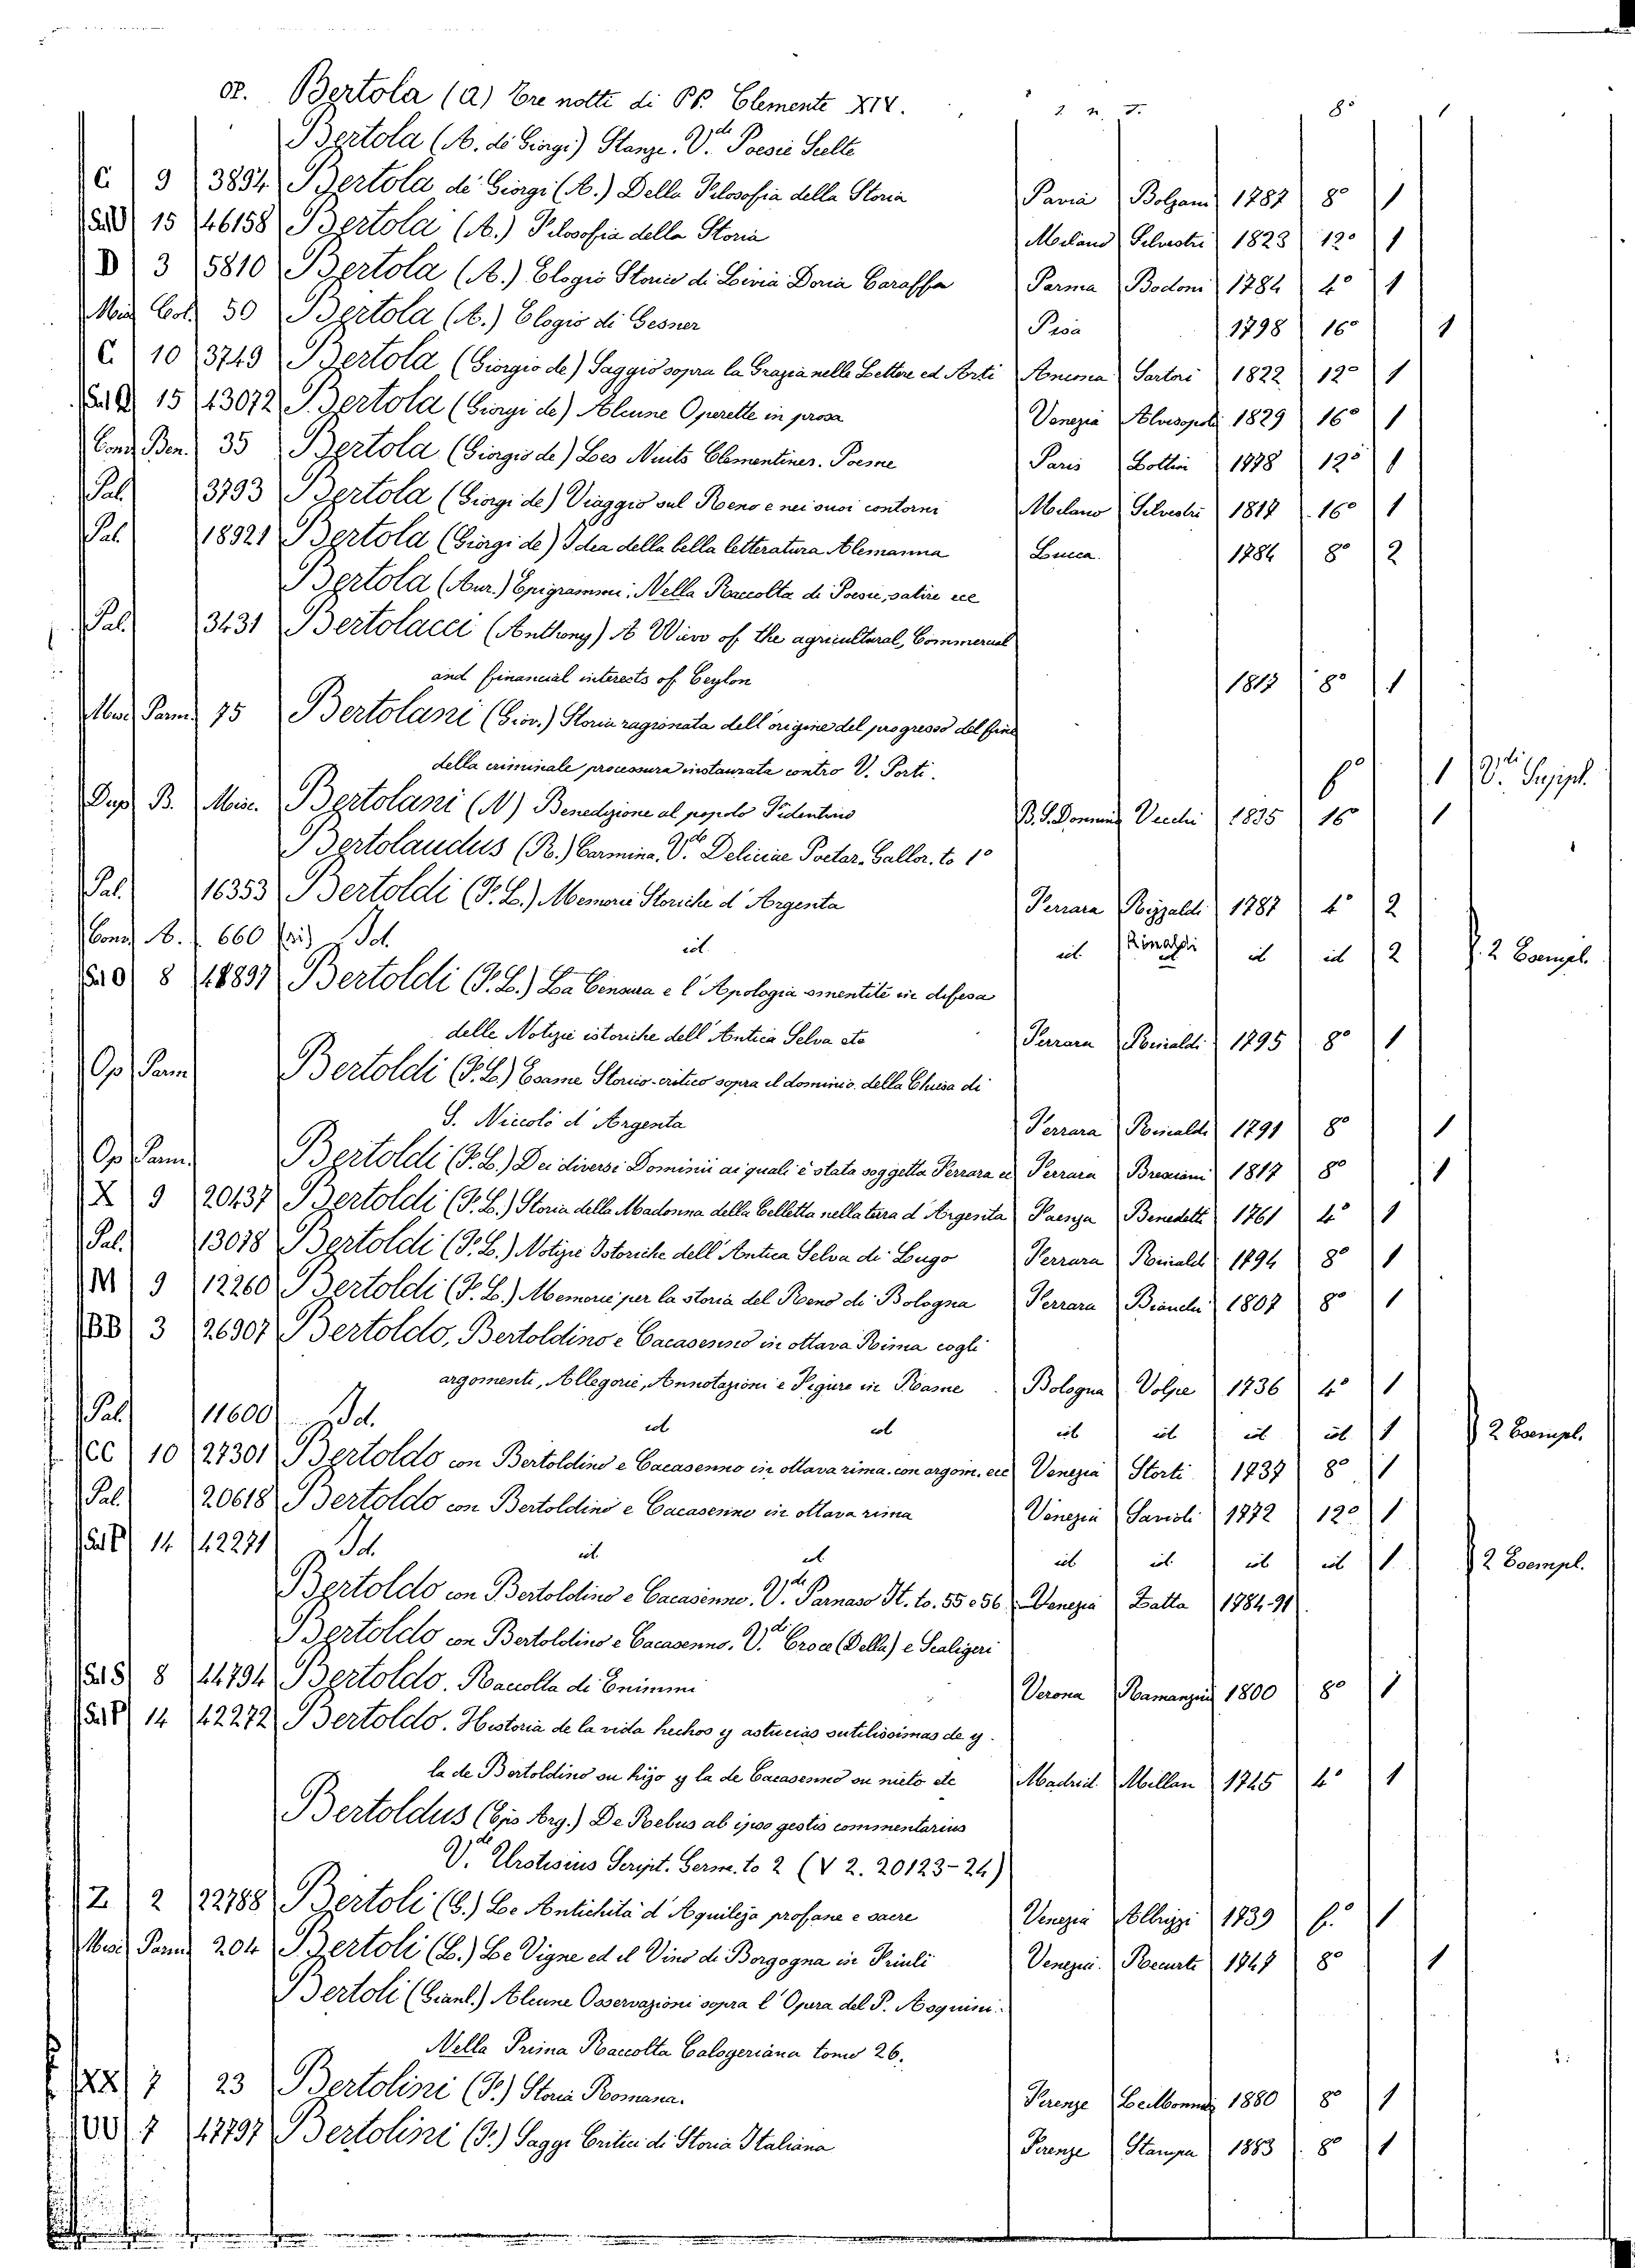 Bertola (A) Tre notti di PP. Clemente XIV. 8° 1
Bertola (A. de Giorgi) Stanze. V. Poesie Scelte
C 9 3894 Bertola de Giorgi (A.) Della Filosofia della Storia Pavia Bolzani 1787 8° 1
15 46158 Bertola (A.) Filosofia della Storia Milano Silvestri 1823 12° 1
D 3 5810 Bertola (A.) Elogio Storico di Livia Doria Caraffa Parma Bodoni 1784 4° 1
50 Bertola (A.) Elogio di Gesner Pisa 1798 16° 1
C 10 3749 Bertola (Giorgio de) Saggio sopra la Grazia nelle Lettere ed Arti Ancona Sartori 1822 12° 1
15 43072 Bertola (Giorgi de) Alcune Operette in prosa Venezia Alvisopoli 1829 16° 1
Cond. Ben. 35 Bertola (Giorgio de) Les Nuits Clementines. Poeme Paris Lottin 1778 12° 1
Pal. 3793 Bertola (Giorgi de) Viaggio sul Reno e nei suoi contorni Milano Silvestri 1817 16° 1
Pal. 18921 Bertola (Giorgi de) Idea della bella letteratura Alemanna Lucca 1784 8° 2
Bertola (Aur.) Epigrammi. Nella Raccolta di Poesie, satire ecc
Pal. 3431 Bertolacci (Anthony) A Wiew of the agricultural, Commercial
and financial interests of Ceylon 1817 8° 1
Parm. 75 Bertolani (Giov.) Storia ragionata dell'origine del progresso del fine
della criminale processura instaurata contro V. Porti. 1
Dup. B. Misc. Bertolani (N) Benedizione al popolo Fidentino B. S. Donnino Vecchi 1835 16° 1
Bertolaudus (R.) Carmina. V. Deliciae Poetar. Gallor. to 1°
Pal. 16353 Bertoldi (F. L.) Memorie Storiche d'Argenta Ferrara Rizzaldi 1787 4° 2
Cond. A. 660 Id. id. id. Rinaldi id id 2 2 Esempl.
8 48897 Bertoldi (F. L.) La Censura e l'Apologia smentite in difesa
delle Notizie istoriche dell'Antica Selva etc Ferrara Rinaldi 1795 8° 1
Op. Parm. Bertoldi (F. L.) Esame Storico-critico sopra il dominio della Chiesa di
S. Niccolò d'Argenta Ferrara Rinaldi 1791 8° 1
Op. Parm. Bertoldi (F. L.) Dei diversi Dominii ai quali è stata soggetta Ferrara ec Ferrara Bresciani 1817 8° 1
X 9 20437 Bertoldi (F. L.) Storia della Madonna della Celletta nella terra d'Argenta Faenza Benedetti 1761 4° 1
Pal. 13078 Bertoldi (F. L.) Notizie Istoriche dell'Antica Selva di Lugo Ferrara Rinaldi 1794 8° 1
M 9 12260 Bertoldi (F. L.) Memorie per la storia del Reno di Bologna Ferrara Bianchi 1807 8° 1
BB 3 26907 Bertoldo, Bertoldino e Cacasenno in ottava Rima cogli
argomenti, Allegorie, Annotazioni e Figure in Rame Bologna Volpe 1736 4° 1
Pal. 11600 Id. id id id id id id 1 2 Esempl.
CC 10 27301 Bertoldo con Bertoldino e Cacasenno in ottava rima con argom. ecc Venezia Storti 1737 8° 1
Pal. 20618 Bertoldo con Bertoldino e Cacasenno in ottava rima Venezia Savioli 1772 12° 1
14 42271 Id. id. id. id id. id id 1 2 Esempl.
Bertoldo con Bertoldino e Cacasenno. V. Parnaso It. to. 55 e 56 Venezia Zatta 1784-91
Bertoldo con Bertoldino e Cacasenno. V. Croce (Della) e Scaligeri
8 44794 Bertoldo. Raccolta di Enimmi Verona Ramanzini 1800 8° 1
14 42272 Bertoldo. Historia de la vida hechos y astucias sutilissimas de y
la de Bertoldino su hijo y la de Cacasenno su nieto etc Madrid Millan 1745 4° 1
Bertoldus (Eps Arg.) De Rebus ab ipso gestis commentarius
V. Urstisius Script. Germ. to 2 (V 2. 20123-24)
Z 2 22788 Bertoli (G.) Le Antichità d'Aquileja profane e sacre Venezia Albrizzi 1739 f.° 1
Misc. Parm. 204 Bertoli (G.) Le Vigne ed il Vino di Borgogna in Friuli Venezia. Recurti 1747 8° 1
Bertoli (Gianl.) Alcune Osservazioni sopra l'Opera del P. Asquini.
Nella Prima Raccolta Calogeriana tomo 26.
7 23 Bertolini (F.) Storia Romana. Firenze 1880 8° 1
7 47797 Bertolini (F.) Saggi Critici di Storia Italiana Firenze Stampa 1883 8° 1